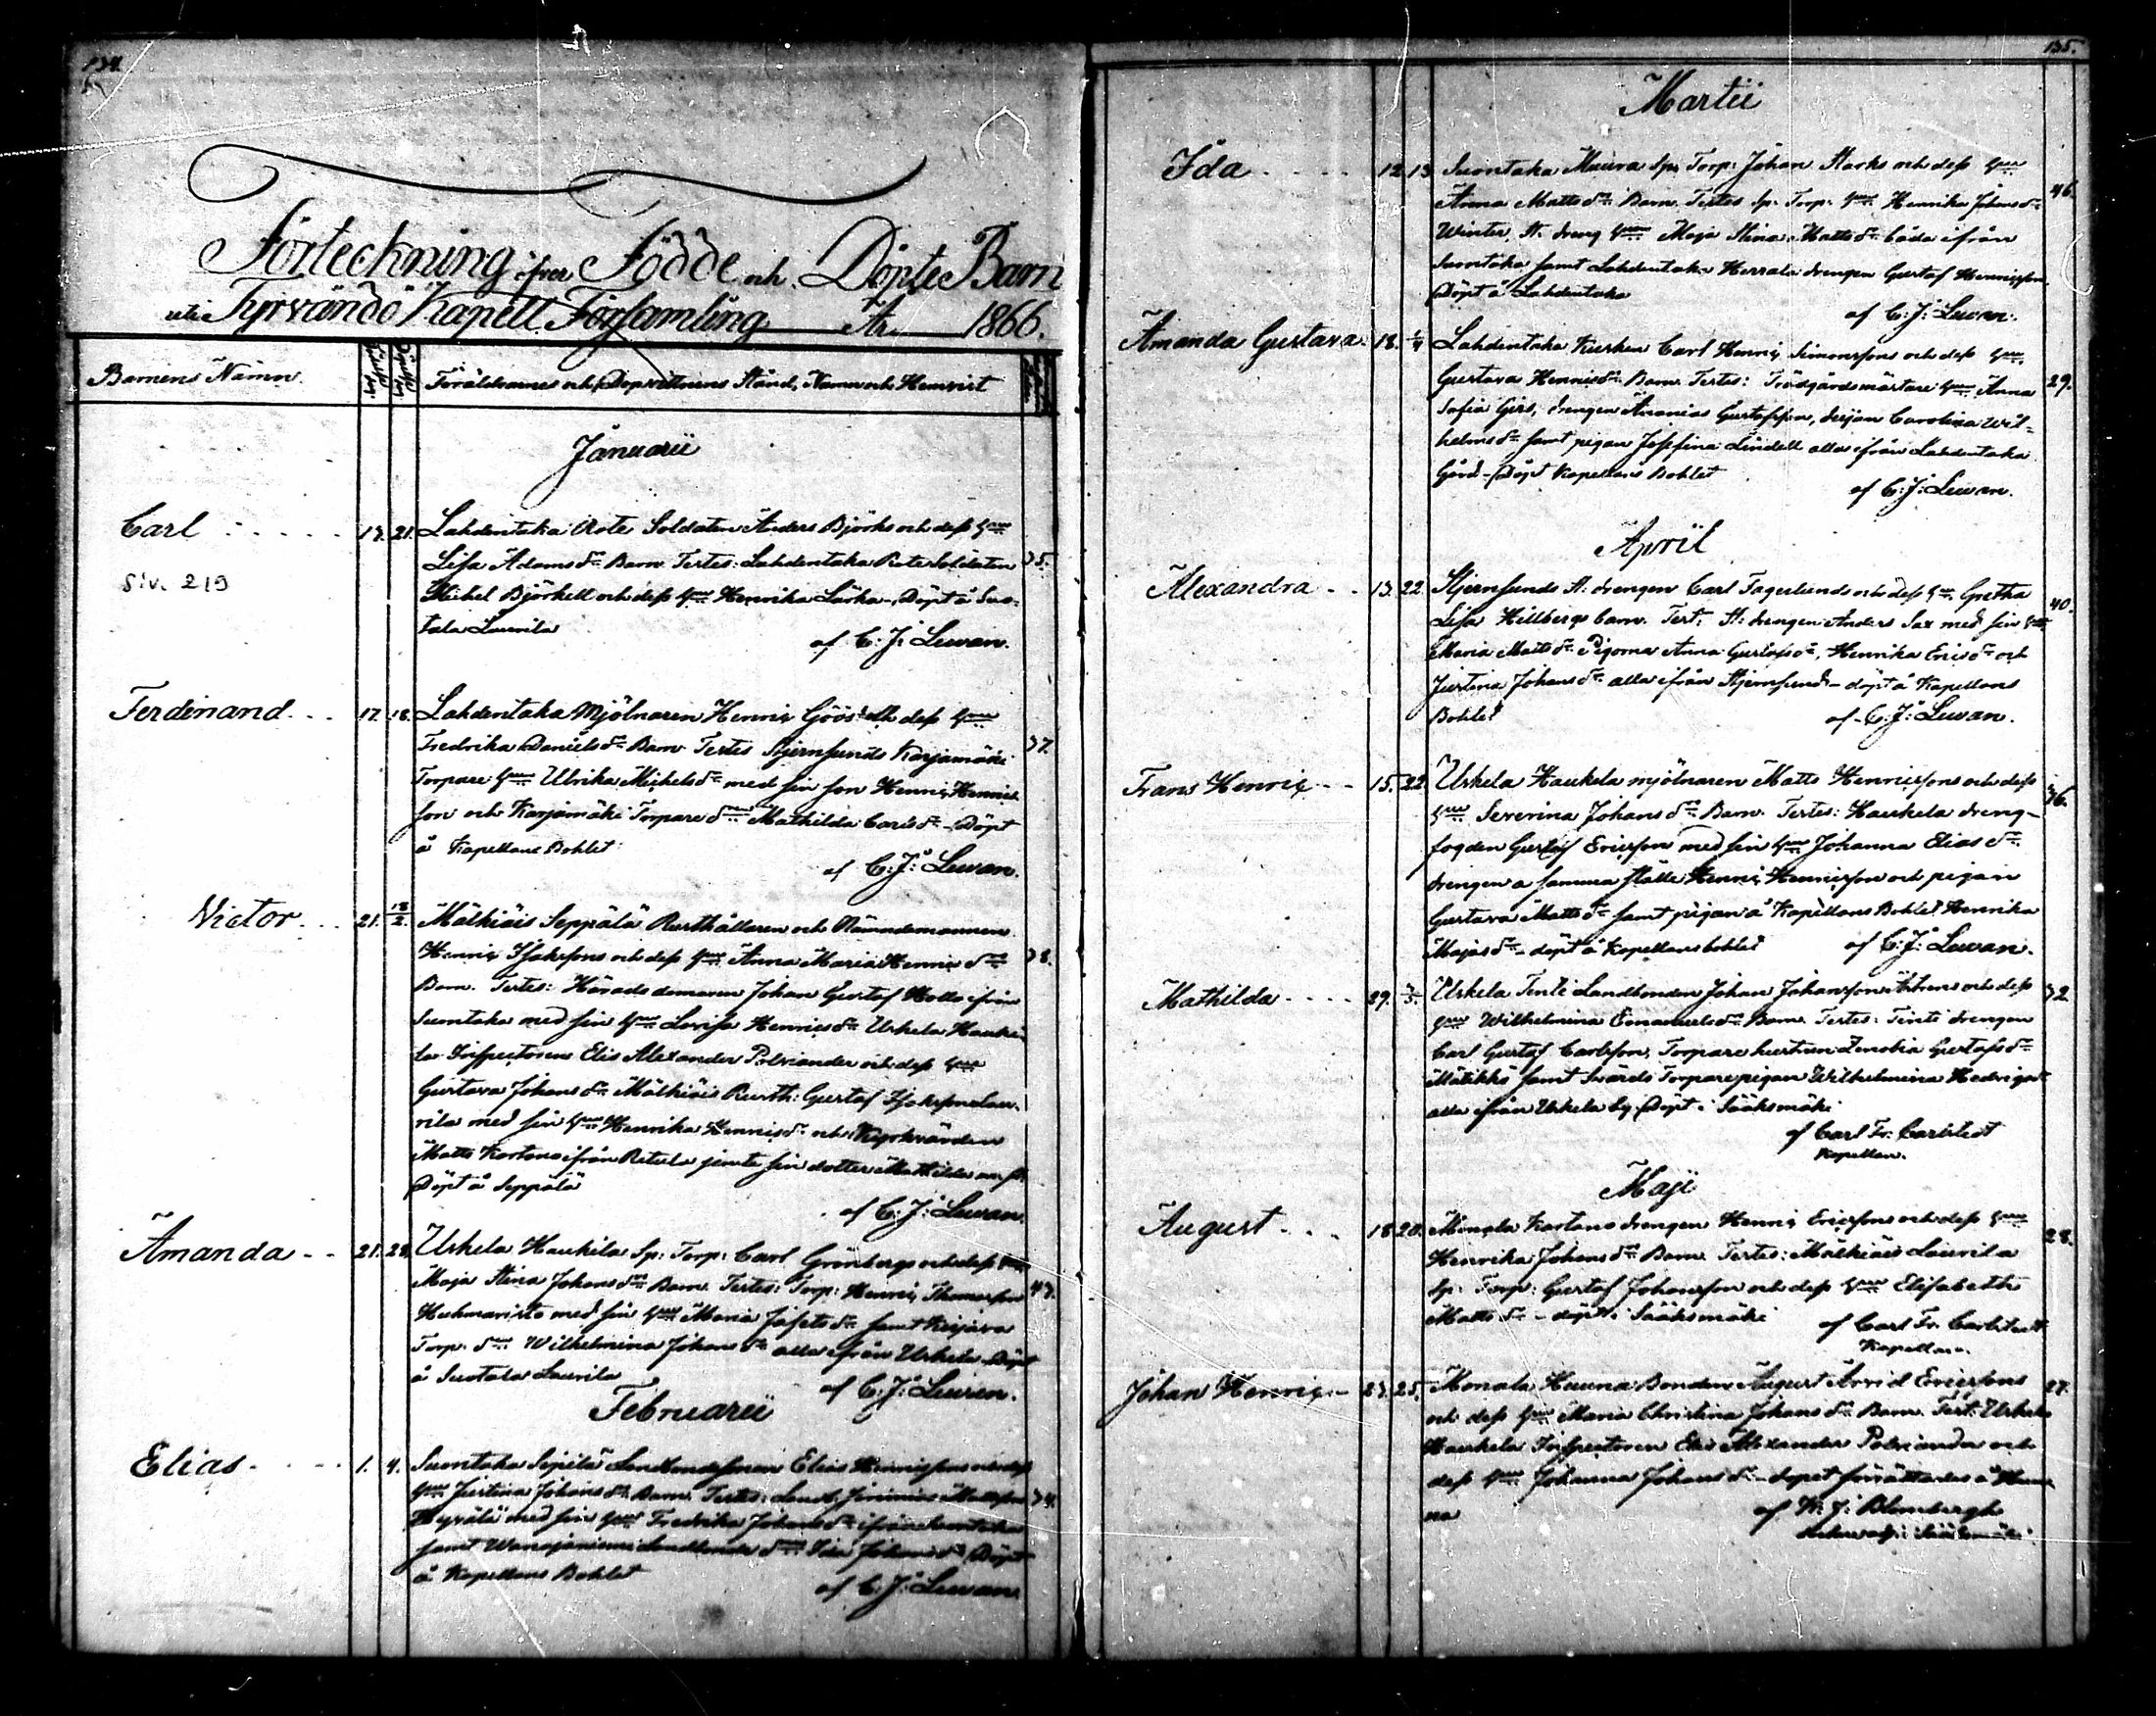 134.
Förteckning öfver Födde och Döpte Barn
uti Tyrvändö Kapell Församling År 1866.
Barnens Namn. Föräldrarnes och Dopvittnens Stånd, Namn och Hemvist
Januarii
Carl 13. 21. Lahdentaka Rote Soldaten Anders Björks och dess hu
Lisa Adamsdr Barn. Testes: Lahdentaka Rote Soldaten 35.
Siv. 219
Michel Björkell och dess hu Henrika Lärka - Döpt å Suo-
tala Laurila
af C: J: Lewan.
Ferdinand 17. 18. Lahdentaka Mjölnaren Henric Göös och dess hu
Fredrika Danielsdr Barn. Testes Stjernsunds Karjamäki 37.
Torpare hu Ulrika Michelsdr med sin son Henric Henric
son och Karjamäki Torpare dr Mathilda Carlsdr - Döpt
å Kapellans Bohlet
af C: J: Lewan.
Victor 21. 18/2. Mälkiäis Seppälä Rusthållaren och Nämndemannen
Henric Isakssons och dess hu Anna Maria Henricsdr 38.
Barn. Testes: Härads domaren Johan Gustaf Hollo ifrån
Suontaka med sin hu Lovisa Henricsdr Urkela Hauke-
la Inspectoren Elis Alexander Polviander och dess hu
Gustava Johansdr Mälkiäis Rusth: Gustaf Isaksson Lau-
rila med sin hu Henrika Henricsdr och Kyrkvärden
Matts Kartano ifrån Retula jemte sin dotter Mathilda
Döpt å Seppälä
af C: J: Lewan.
Amanda 21. 28. Urkela Haukila Sp: Torp: Carl Grönbergs och dess hu
Maja Stina Johansdr Barn. Testes: Torp: Henric Thomasson 43.
Huhmaristo med sin hu Maria Josefsdr samt
Torp: dr Wilhelmina Johansdr alla ifrån Urkela Döpt
å Suotala Laurila
af C: J: Lewan.
Februarii
Elias 1. 4. Suontaka Sipilä Landbondesonen Elias Henricssons och dess
hu Justina Johansdr Barn. Testes: Landb: Jeremias Mattsson 34.
Hyrälä med sin hu Fredrika Johansdr ifrån Suontaka
samt Wanajaniemi Landbonde dr Ida Johansdr Döpt
å Kapellans Bohlet
af C: J: Lewan.
135.
Martii
Ida 12. 13 Suontaka Muura Sp: Torp: Johan Starks och dess hu
Anna Mattsdr Barn. Testes Sp: Torp: hu Henrika Johansdr 46.
Winter, St. dreng hu Maja Stina Mattsdr båda ifrån
Suontaka samt Lahdentaka Herrala drengen Gustaf Henricsson
Döpt å Lahdentaka
af C: J: Lewan.
Amanda Gustava 18. 1/4 Lahdentaka Kusken Carl Henric Simonssons och dess hu
Gustava Henricsdr Barn. Testes: Trädgårdsmästare hu Anna 29.
Sofia Girs, drengen Ananias Gustafsson, dejan Carolina Wil-
helmsdr samt pigan Josefina Lindell alla ifrån Lahdentaka
Gård - Döpt Kapellans Bohlet
af C: J: Lewan.
April
Alexandra 13. 22. Stjernsunds St: drengen Carl Fagerlunds och dess hu Gretha
Lisa Hillbergs barn. Test: St: drengen Anders Sax med sin hu 40.
Maria Mattsdr Pigorna Anna Gustafsdr, Henrika Ericsdr och
Justina Johansdr alla ifrån Stjernsund - döpt å Kapellans
Bohlet
af C: J: Lewan.
Frans Henric 15. 22. Urkela Haukela mjölnaren Matts Henricssons och dess
hu Severina Johansdr Barn. Testes: Haukela dreng- 36.
fogden Gustaf Ericsson med sin hu Johanna Eliasdr
drengen a samma ställe Henric Henricsson och pigan
Gustava Mattsdr samt pigan å Kapellans Bohlet Henrika
Majasdr - döpt å Kapellans bohlet
af C: J: Lewan.
Mathilda 29. /5. Urkela Tinti Landbonden Johan Johanssons och dess 32
hu Wilhelmina Emanuelsdr Barn. Testes: Tinti drengen
Carl Gustaf Carlsson, Torpare hustrun Zenobia Gustafsdr
Mätikkö samt Svärds Torpare pigan Wilhelmina Hedvigsdr
alla ifrån Urkela by. Döpt i Sääksmäki
af Carl Fr: Carlstedt
Kapellan.
Maji
August 18 20. Monala Kartano drengen Henric Ericssons och dess hu
Henrika Johansdr Barn. Testes: Mälkiäis Laurila 28.
Sp: Torp: Gustaf Johansson och dess hu Elisabeth
Mattsdr - döpt i Sääksmäki
af Carl Fr. Carlstedt
Kapellan.
Johan Henric 23. 25. Monala Huuna Bonden August Arvid Ericssons 27.
och dess hu Maria Christina Johansdr Barn. Test: Urkela
Haukela Inspectoren Elis Alexander Polviander och
dess hu Johanna Johansdr - dopet förrättades å Huu-
na
af K: J: Blombergh